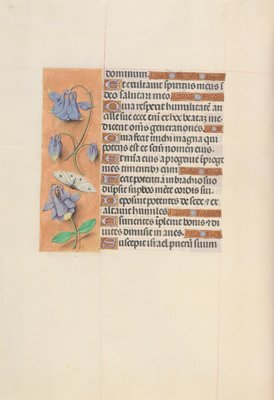 dominum.
Et exultavit spiritus meus i
deo salutari meo
Quia respexit humilitatem an
cille sue ecce enim ex hoc beatam me
dicent omnes generationes.
Quia fecit michi magna qui
potens est et sanctum nomen eius.
Et misericordia eius a progenie in progenies
timentibus eum
Fecit potentiam in brachio suo
dispersit superbos mente cordis sui.
Deposuit potentes de sede et ex
altavit humiles
Esurientes implevit bonis et di
vites dimisit inanes.
Suscepit israel puerum suum